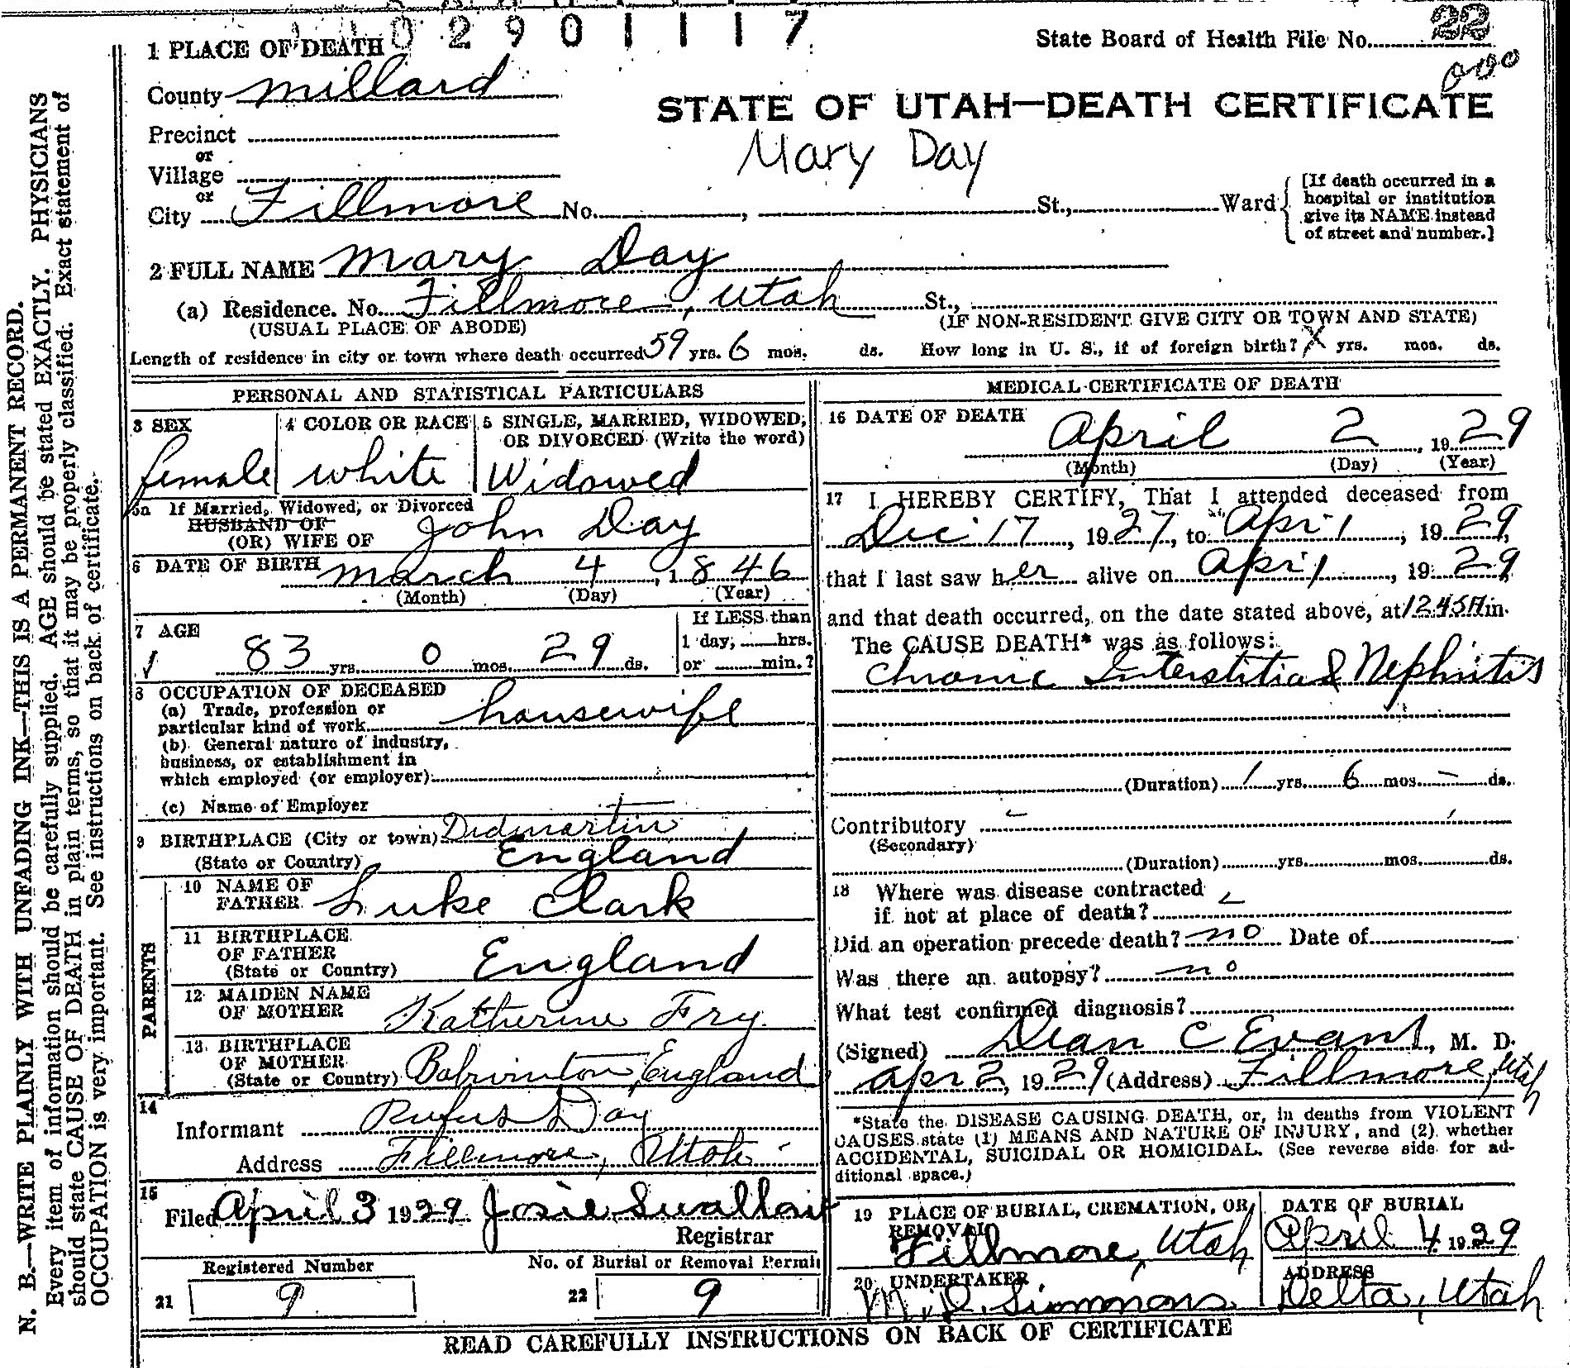 02901117
State Board of Health File No. 22
000
1 PLACE OF DEATH
County Millard
STATE OF UTAH—DEATH CERTIFICATE
Precinct
or
Mary Day
Village
or
City Fillmore No. , St., Ward
[If death occurred in a
hospital or institution
give its NAME instead
of street and number.]
2 FULL NAME Mary Day
(a) Residence. No. Fillmore, Utah St.,
(USUAL PLACE OF ABODE) (IF NON-RESIDENT GIVE CITY OR TOWN AND STATE)
Length of residence in city or town where death occurred 59 yrs. 6 mos. ds. How long in U. S., if of foreign birth? X yrs. mos. ds.
PERSONAL AND STATISTICAL PARTICULARS
3 SEX 4 COLOR OR RACE 5 SINGLE, MARRIED, WIDOWED,
OR DIVORCED (Write the word)
female white Widowed
5a If Married, Widowed, or Divorced
HUSBAND OF
(OR) WIFE OF John Day
6 DATE OF BIRTH March 4, 1846
(Month) (Day) (Year)
7 AGE If LESS than
1 day, hrs.
83 yrs 0 mos. 29 ds. or min.?
8 OCCUPATION OF DECEASED
(a) Trade, profession or
particular kind of work housewife
(b) General nature of industry,
business, or establishment in
which employed (or employer)
(c) Name of Employer
9 BIRTHPLACE (City or town) Didmartin
(State or Country) England
PARENTS
10 NAME OF
FATHER Luke Clark
11 BIRTHPLACE
OF FATHER
(State or Country) England
12 MAIDEN NAME
OF MOTHER Katherine Fry
13 BIRTHPLACE
OF MOTHER
(State or Country) England
14
Informant Rufus Day
Address Fillmore, Utah
15
Filed April 3 1929 Josie Swallow
Registrar
Registered Number No. of Burial or Removal Permit
21 9 22 9
MEDICAL CERTIFICATE OF DEATH
16 DATE OF DEATH
April 2, 1929
(Month) (Day) (Year)
17 I HEREBY CERTIFY, That I attended deceased from
Dec 17, 1927, to Apr 1, 1929,
that I last saw her alive on Apr 1, 1929,
and that death occurred, on the date stated above, at 1245 A m.
The CAUSE DEATH* was as follows:
Chronic Interstitial Nephritis
(Duration) 1 yrs 6 mos – ds.
Contributory –
(Secondary)
(Duration) yrs. mos. ds.
18 Where was disease contracted
if not at place of death?
Did an operation precede death? no Date of
Was there an autopsy? no
What test confirmed diagnosis?
(Signed) Dean C Evans, M. D.
Apr 2, 1929 (Address) Fillmore, Utah
*State the DISEASE CAUSING DEATH, or, in deaths from VIOLENT
CAUSES state (1) MEANS AND NATURE OF INJURY, and (2) whether
ACCIDENTAL, SUICIDAL OR HOMICIDAL. (See reverse side for ad-
ditional space.)
19 PLACE OF BURIAL, CREMATION, OR
REMOVAL
Fillmore, Utah
DATE OF BURIAL
April 4 1929
20 UNDERTAKER
Simmons
ADDRESS
Delta, Utah
READ CAREFULLY INSTRUCTIONS ON BACK OF CERTIFICATE
N. B.—WRITE PLAINLY WITH UNFADING INK—THIS IS A PERMANENT RECORD.
Every item of information should be carefully supplied. AGE should be stated EXACTLY. PHYSICIANS
should state CAUSE OF DEATH in plain terms, so that it may be properly classified. Exact statement of
OCCUPATION is very important. See instructions on back of certificate.